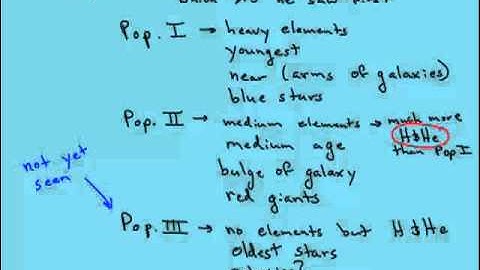 Pop. I → heavy elements
youngest
near (arms of galaxies)
blue stars
Pop. II → medium elements → much more
H & He
than Pop I
medium age
bulge of galaxy
red giants
not yet
seen
Pop. III → no elements but H & He
oldest stars